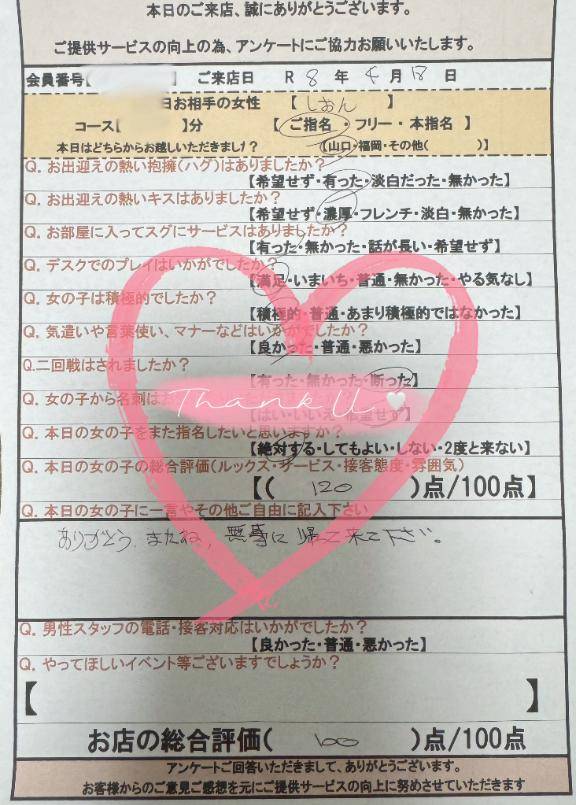 本日のご来店、誠にありがとうございます。
ご提供サービスの向上の為、アンケートにご協力お願いいたします。
会員番号【 】 ご来店日 R 8 年 4 月 18 日
日お相手の女性 【 しおん 】
コース【 】分 【 ご指名・フリー・本指名 】
本日はどちらからお越しいただきました? 【山口・福岡・その他( )】
Q. お出迎えの熱い抱擁(ハグ)はありましたか?
【希望せず・有った・淡白だった・無かった】
Q. お出迎えの熱いキスはありましたか?
【希望せず・濃厚・フレンチ・淡白・無かった】
Q. お部屋に入ってスグにサービスはありましたか?
【有った・無かった・話が長い・希望せず】
Q. デスクでのプレイはいかがでしたか?
【満足・いまいち・普通・無かった・やる気なし】
Q. 女の子は積極的でしたか?
【積極的・普通・あまり積極的ではなかった】
Q. 気遣いや言葉使い、マナーなどはいかがでしたか?
【良かった・普通・悪かった】
Q.二回戦はされましたか?
【有った・無かった・断った】
Q. 女の子から名刺は
Thank U
【はい・いいえ・希望せず】
Q. 本日の女の子をまた指名したいと思いますか?
【絶対する・してもよい・しない・2度と来ない】
Q. 本日の女の子の総合評価(ルックス・サービス・接客態度・雰囲気)
【( 120 )点/100点】
Q. 本日の女の子に一言やその他ご自由に記入下さい
ありがとう、またね、無事に帰って来て下さい。
Q. 男性スタッフの電話・接客対応はいかがでしたか?
【良かった・普通・悪かった】
Q. やってほしいイベント等ございますでしょうか?
【 】
お店の総合評価( 100 )点/100点
アンケートご回答いただきまして、ありがとうございます。
お客様からのご意見ご感想を元にご提供サービスの向上に努めさせていただきます